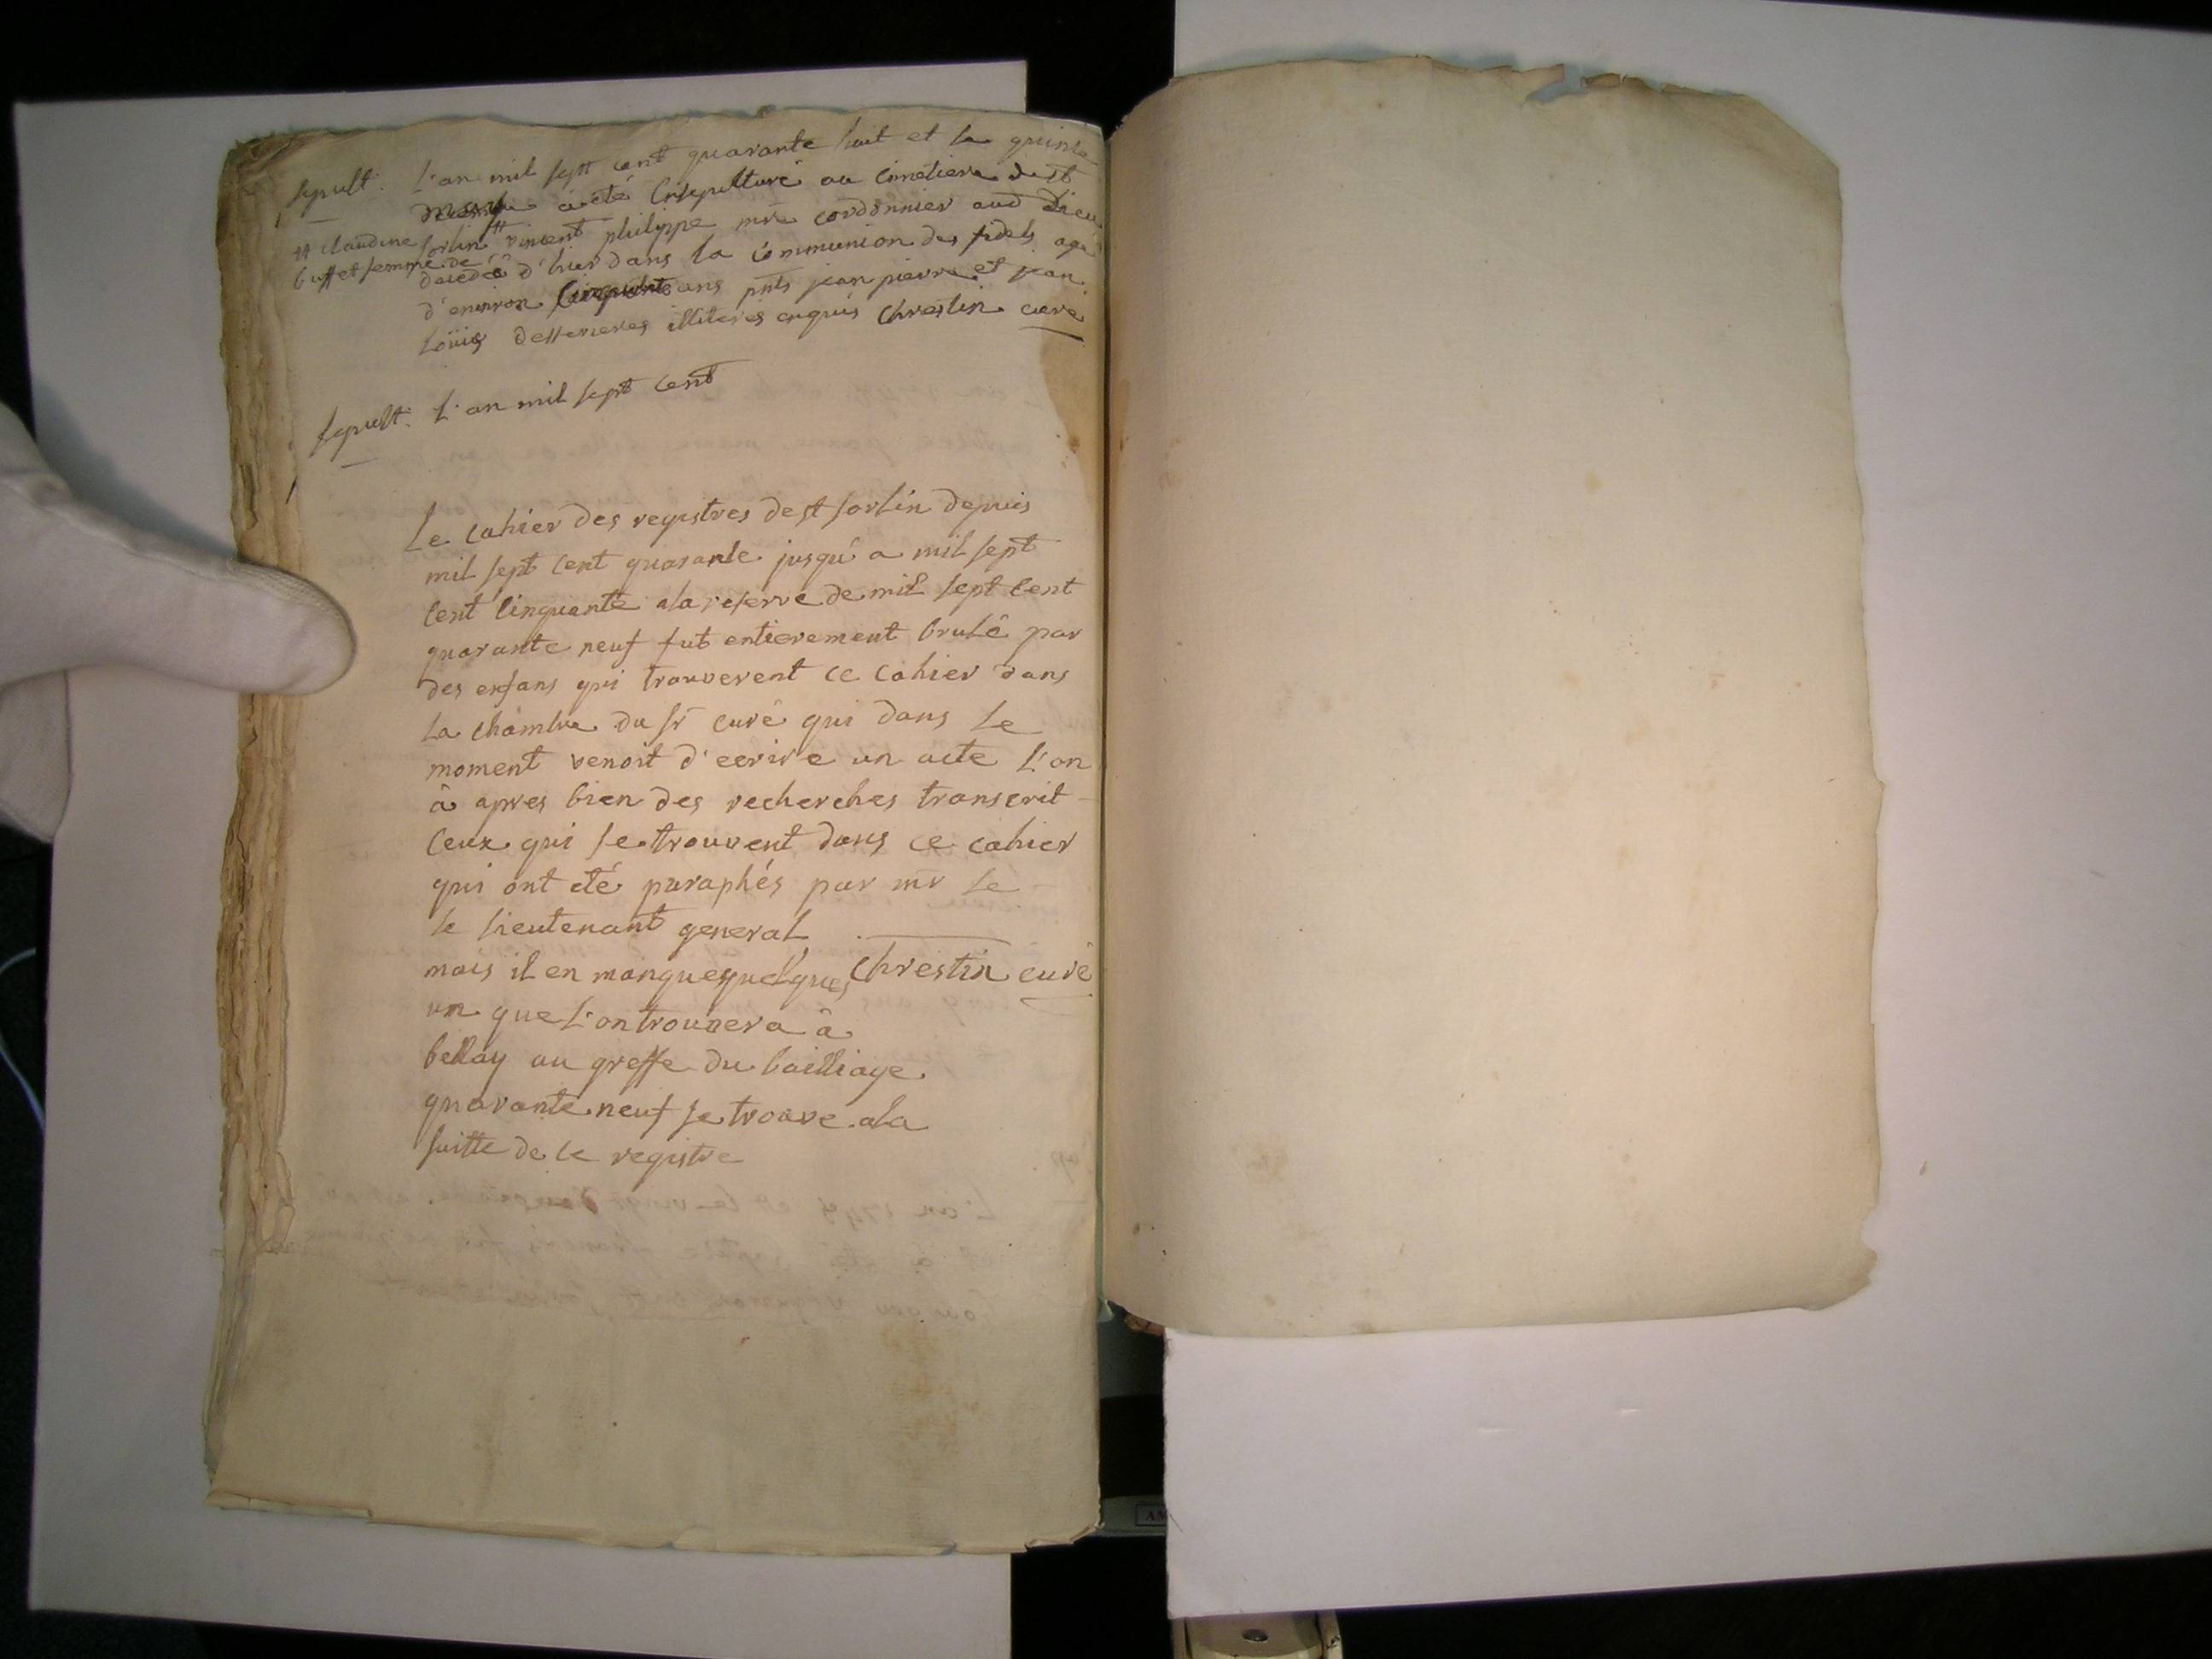 sepult. L'an mil sept cent quarante huit et le quinze
may a été Ensepulturé au Cimetiere de st
sorlin ++ vincent philippe mre cordonnier aud Lieu
++ claudine
buffet femme de
decedéé d'hier dans la Communion des fidels agé
d'environ Cinquante ans pnts jean pierre et jean
Loüis desserieres illiterés enquis Chrestin curé
sepult. L'an mil sept cent
Le Cahier des registres de st sorlin depuis
mil sept Cent quarante jusqu'a mil sept
Cent Cinquante a la reserve de mil sept Cent
quarante neuf fut entierement brulé par
des enfans qui trouverent ce Cahier dans
La chambre du sr curé qui dans le
moment venoit d'ecrire un acte L'on
à apres bien des recherches transcrit
Ceux qui se trouvent dans ce cahier
qui ont eté paraphés par mr Le
le Lieutenant general
mais il en manque quelques Chrestin curé
un que L'on trouvera à
bellay au greffe du bailliage
quarante neuf se trouve a la
suitte de ce registre